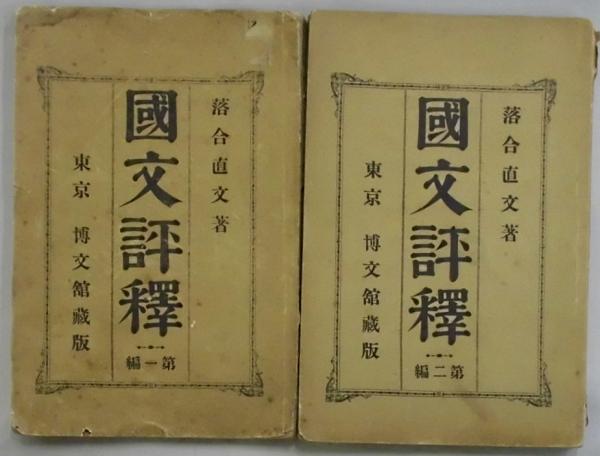 落合直文著
國文評釋
第一編
東京 博文館藏版
落合直文著
國文評釋
第二編
東京 博文館藏版